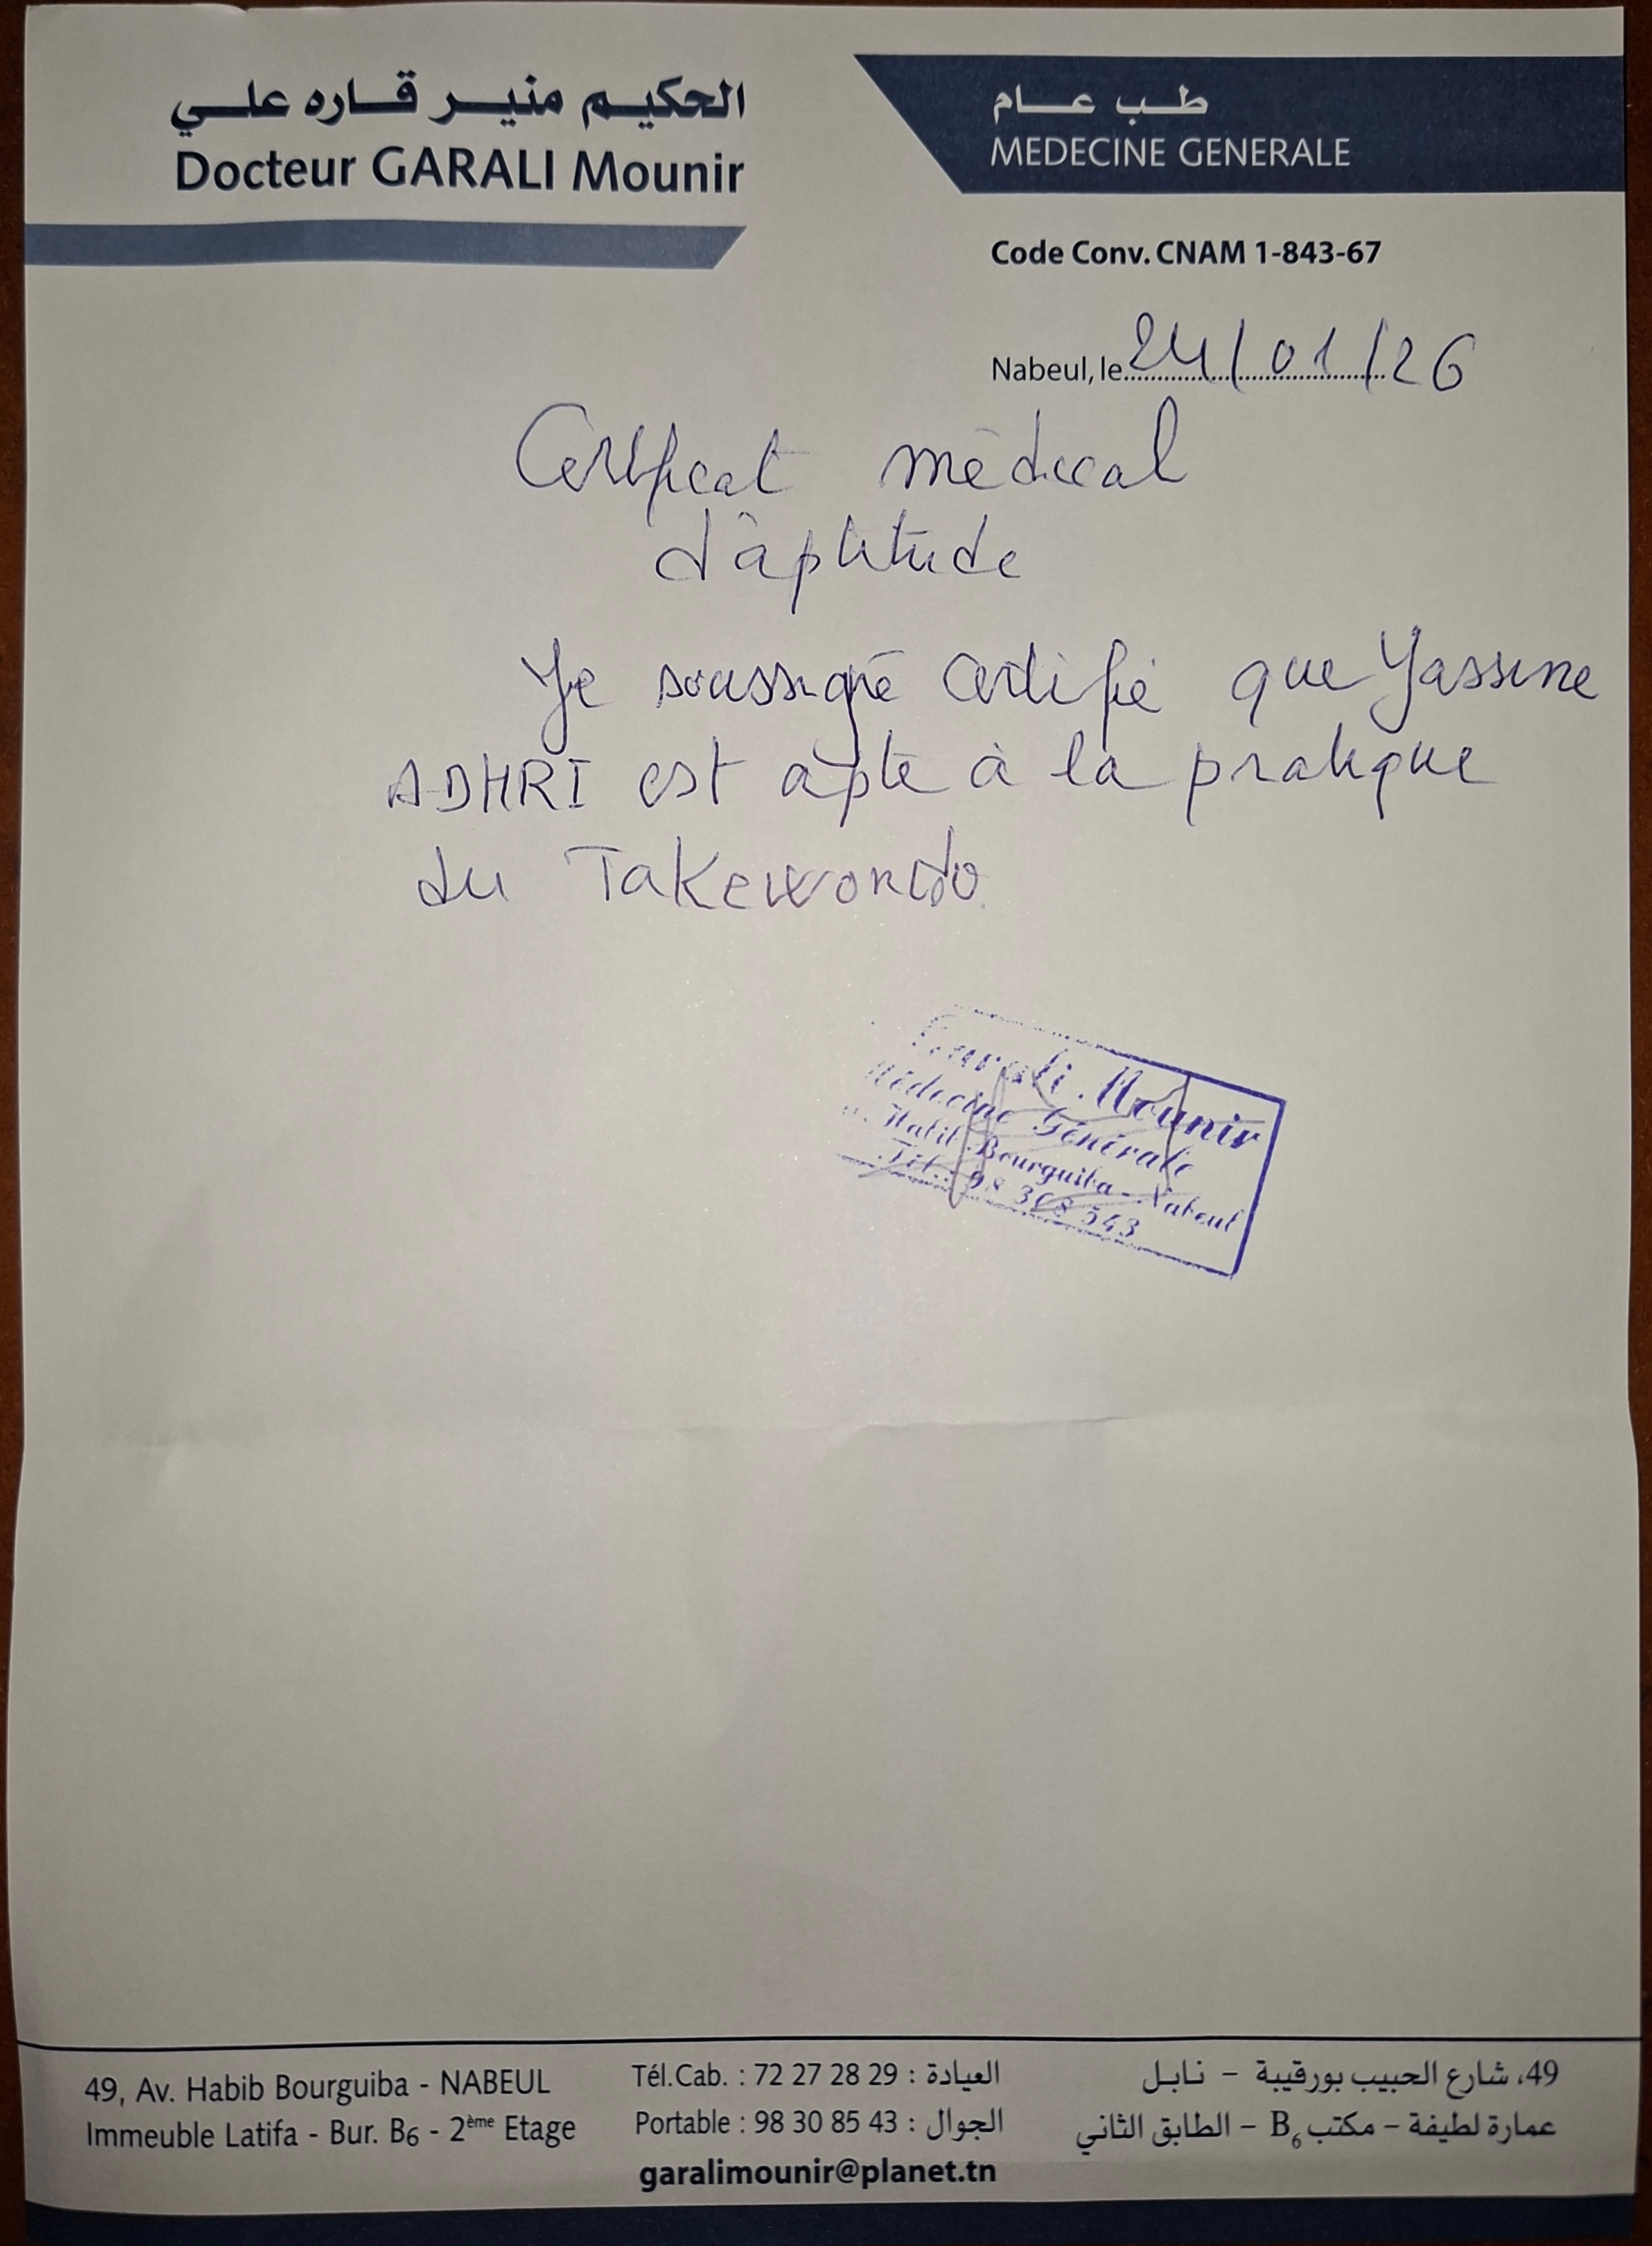 الحكيم منير قاره علي
Docteur GARALI Mounir
طب عام
MEDECINE GENERALE
Code Conv. CNAM 1-843-67
Nabeul, le 24/01/26
Certificat médical
d'aptitude
Je soussigné certifie que Yassine
ADHRI est apte à la pratique
du Takewondo
Garali Mounir
Médecine Générale
Habib Bourguiba - Nabeul
Tél.: 98 308 543
49, Av. Habib Bourguiba - NABEUL
Immeuble Latifa - Bur. B6 - 2ème Etage
Tél.Cab. : 72 27 28 29 : العيادة
Portable : 98 30 85 43 : الجوال
garalimounir@planet.tn
49، شارع الحبيب بورقيبة - نابل
عمارة لطيفة - مكتب B6 - الطابق الثاني